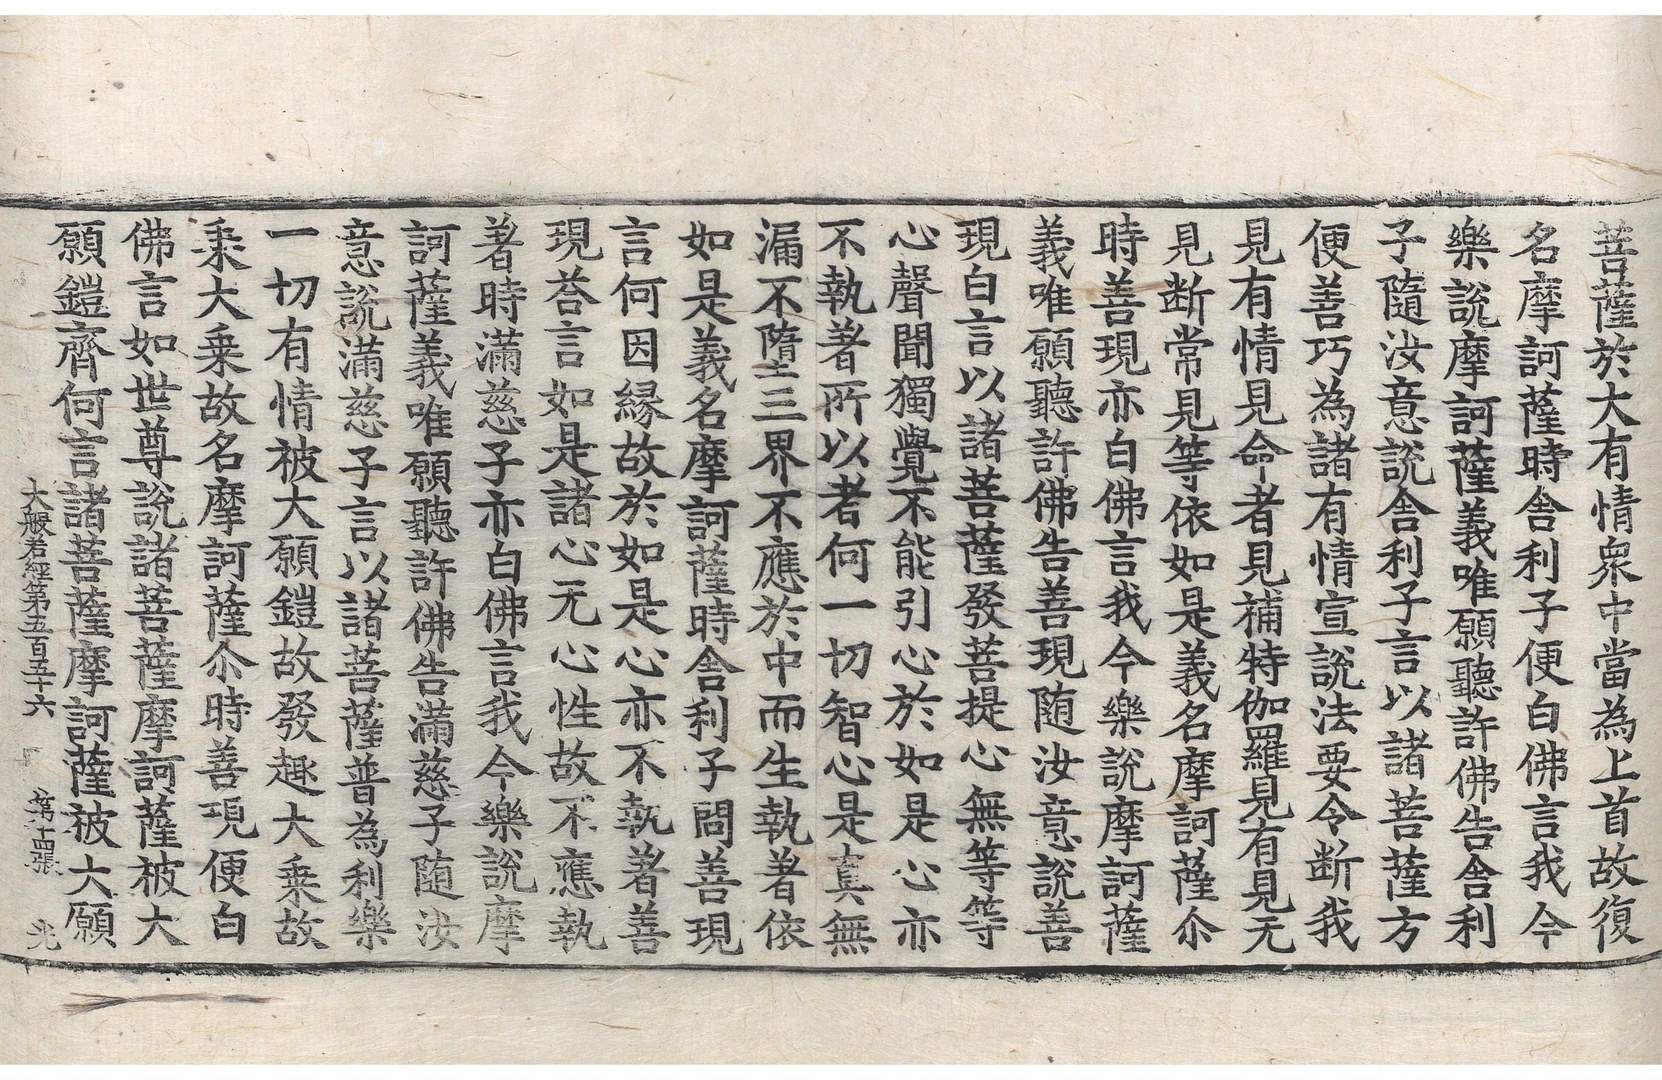 菩薩於大有情衆中當為上首故復
名摩訶薩時舎利子便白佛言我今
樂說摩訶薩義唯願聽許佛告舎利
子隨汝意說舎利子言以諸菩薩方
便善巧為諸有情宣說法要令断我
見有情見命者見補特伽羅見有見无
見断常見等依如是義名摩訶薩尒
時善現亦白佛言我今樂說摩訶薩
義唯願聽許佛告善現随汝意說善
現白言以諸菩薩發菩提心無等等
心聲聞獨覺不能引心於如是心亦
不執著所以者何一切智心是真無
漏不墮三界不應於中而生執著依
如是義名摩訶薩時舎利子問善現
言何因縁故於如是心亦不執著善
現荅言如是諸心无心性故不應執
著時滿慈子亦白佛言我今樂說摩
訶薩義唯願聽許佛告滿慈子随汝
意說滿慈子言以諸菩薩普為利樂
一切有情被大願鎧故發趣大乗故
乗大乗故名摩訶薩尒時善現便白
佛言如世尊說諸菩薩摩訶薩被大
願鎧齊何言諸菩薩摩訶薩被大願
大般若經第五百五十六 第十四張 光